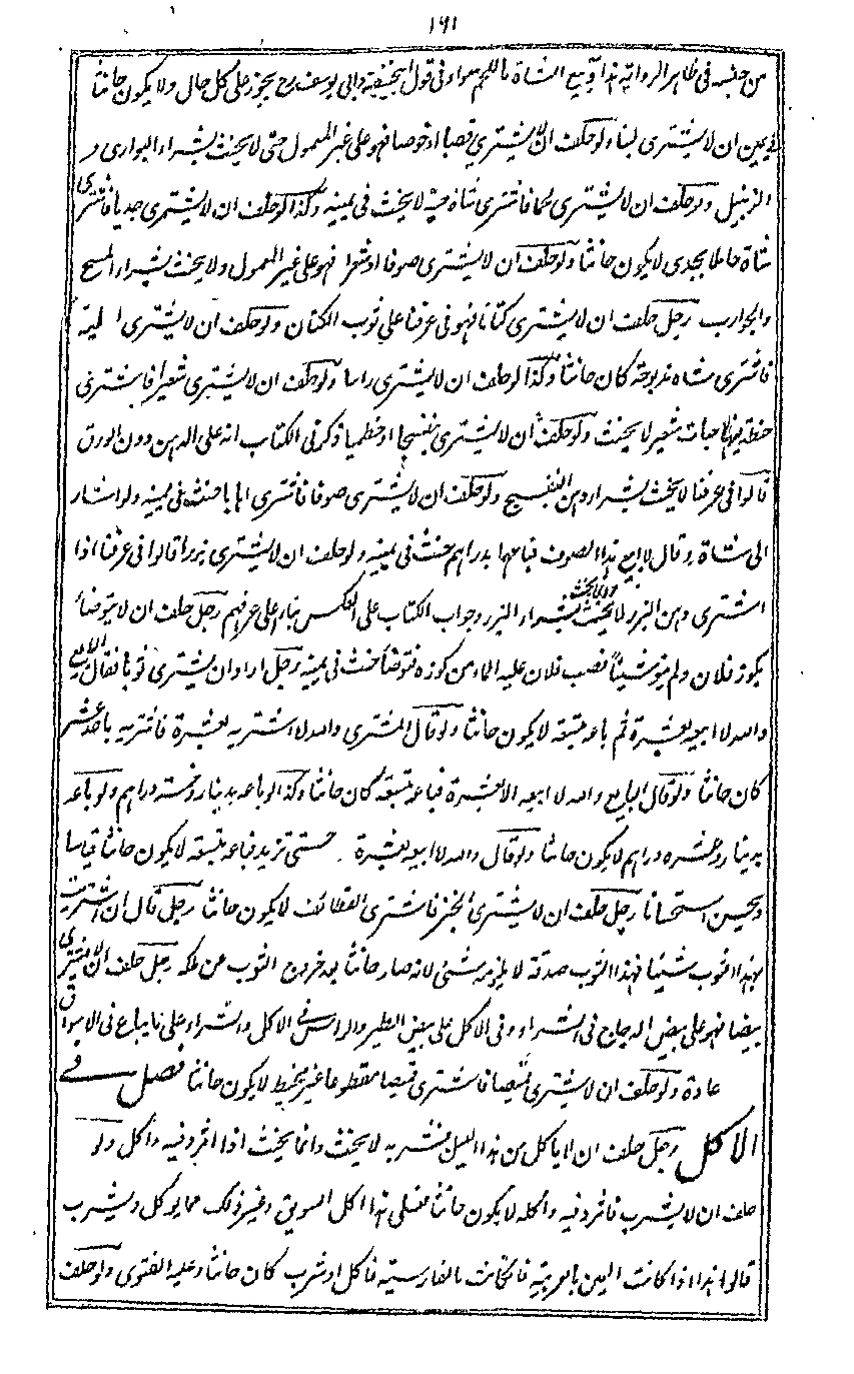 ١٩١
من جنسه فى ظاهر الرواية هذا وبيع الشاة باللحم سواء فى قول ابيحنيفة وابى يوسف رح يجوز على كل حال ولا يكون حانثا
فى يمين ان لا يشترى لبنا ولو حلف ان لا يشترى قصبا او خوصا فهو على غير المعمول حتى لا يحنث بشراء البوارى و
الزنبيل ولو حلف ان لا يشترى لحما فاشترى شاة حية لا يحنث فى يمينه وكذا لو حلف ان لا يشترى جديا فاشترى
شاة حاملا بجدى لا يكون حانثا ولو حلف ان لا يشترى صوفا او شعرا فهو على غير المعمول ولا يحنث بشراء المسح
والجوارب رجل حلف ان لا يشترى كتانا فهو فى عرفنا على ثوب الكتان ولو حلف ان لا يشترى الية
فاشترى شاة مذبوحة كان حانثا وكذا لو حلف ان لا يشترى راسا ولو حلف ان لا يشترى شعيرا فاشترى
حنطة فيها حبات شعير لا يحنث ولو حلف ان لا يشترى بنفسجا او خطميا ذكر فى الكتاب انه على الدهن دون الورق
قالوا فى عرفنا لا يحنث بشراء دهن البنفسج ولو حلف ان لا يشترى صوفا فاشترى اهابا حنث فى يمينه ولو اشار
الى شاة وقال لا ابيع هذا الصوف فباعها بدراهم حنث فى يمينه ولو حلف ان لا يشترى بزرا قالوا فى عرفنا اذا
اشترى دهن البزر لا يحنث بشراء البزر وجواب الكتاب على العكس بناء على عرفهم رجل حلف ان لا يتوضأ
بكوز فلان ولم ينو شيئا فصب فلان عليه الماء من كوزه فتوضأ حنث فى يمينه رجل اراد ان يشترى ثوبا فقال البايع
والله لا ابيعه بعشرة ثم باعه بتسعة لا يكون حانثا ولو قال المشترى والله لا اشتريه بعشرة فاشتريه باحد عشر
كان حانثا ولو قال البايع والله لا ابيعه الا بعشرة فباعه بتسعة كان حانثا وكذا لو باعه بدينار وخمسة دراهم ولو باعه
بدينار وعشرة دراهم لا يكون حانثا ولو قال والله لا ابيعه بعشرة حتى تزيد فباعه بتسعة لا يكون حانثا قياسا
ويحنث استحسانا رجل حلف ان لا يشترى الخبز فاشترى القطائف لا يكون حانثا رجل قال ان اشتريت
بهذا الثوب شيئا فهذا الثوب صدقة لا يلزمه شئ لانه صار حانثا بعد خروج الثوب عن ملكه رجل حلف ان لا يشترى
بيضا فهو على بيض الدجاج فى الشراء وفى الاكل على بيض الطير والراس فى الاكل والشراء على ما يباع فى الاسواق
عادة ولو حلف ان لا يشترى قميصا فاشترى قميصا مقطوعا غير مخيط لا يكون حانثا فصل فى
الاكل رجل حلف ان لا ياكل من هذا اللبن فشربه لا يحنث وانما يحنث اذا اثرد فيه واكل ولو
حلف ان لا يشرب فاثرد فيه واكله لا يكون حانثا فعلى هذا اكل السويق وغير ذلك مما يوكل ويشرب
قالوا هذا اذا كانت اليمين بالعربية فان كانت بالفارسية فاكل او شرب كان حانثا وعليه الفتوى ولو حلف